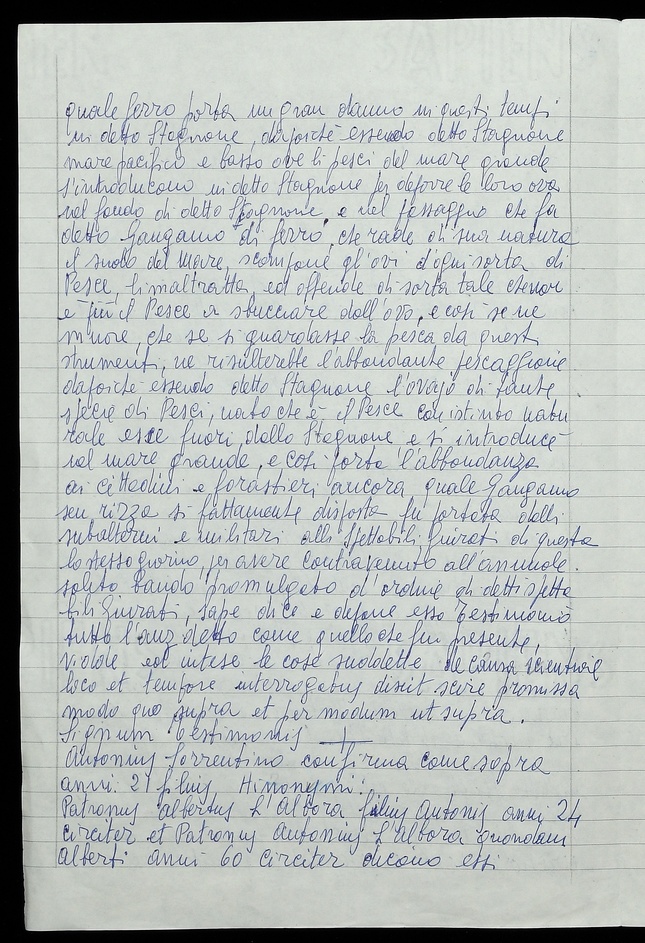 quale ferro porta un gran danno in questi tempi
in detto Stagnone, dapoiché essendo detto Stagnone
mare pacifico e basso ove li pesci del mare grande
s'introducono in detto Stagnone per deporre le loro ova
nel fondo di detto Stagnone, e nel passaggio che fa
detto Gangamo di ferro, che rade di sua natura
il suolo del mare, scompone gl'ovi d'ogni sorta di
Pesce, li maltratta, ed offende di sorta tale che non
è più il Pesce a sbucciare dall'ovo, e così se ne
muore, che se si guardasse la pesca da questi
strumenti, ne risulterebbe l'abbondante pescaggione
dapoiché essendo detto Stagnone l'ovajo di tante
specie di Pesci, nato che è il Pesce con istinto natu
rale esce fuori dallo Stagnone e si introduce
nel mare grande, e così porta l'abbondanza
ai cittadini e forastieri ancora quale Gangamo
seu rizza si fattamente disposta fu portata dalli
subalterni e militari alli Spettabili Giurati di questa
lo stesso giorno, per avere contravenuto all'annuale
solito bando promulgato d'ordine di detti spetta
bili Giurati, sape dice e depone esso Testimonio
tutto l'anz detto come quello che fu presente,
vidde ed intese le cose suddette de causa scientiae
loco et tempore interrogatus dixit scire promissa
modo quo supra et per modum ut supra.
Signum Testimonij +
Antonius Sorrentino confirma come sopra
anni: 21 filius Hironymi:
Patronus Albertus L'Albora filius Antonij anni 24
circiter et Patronus Antonius L'albora quondam
Alberti anni 60 circiter dicono essi